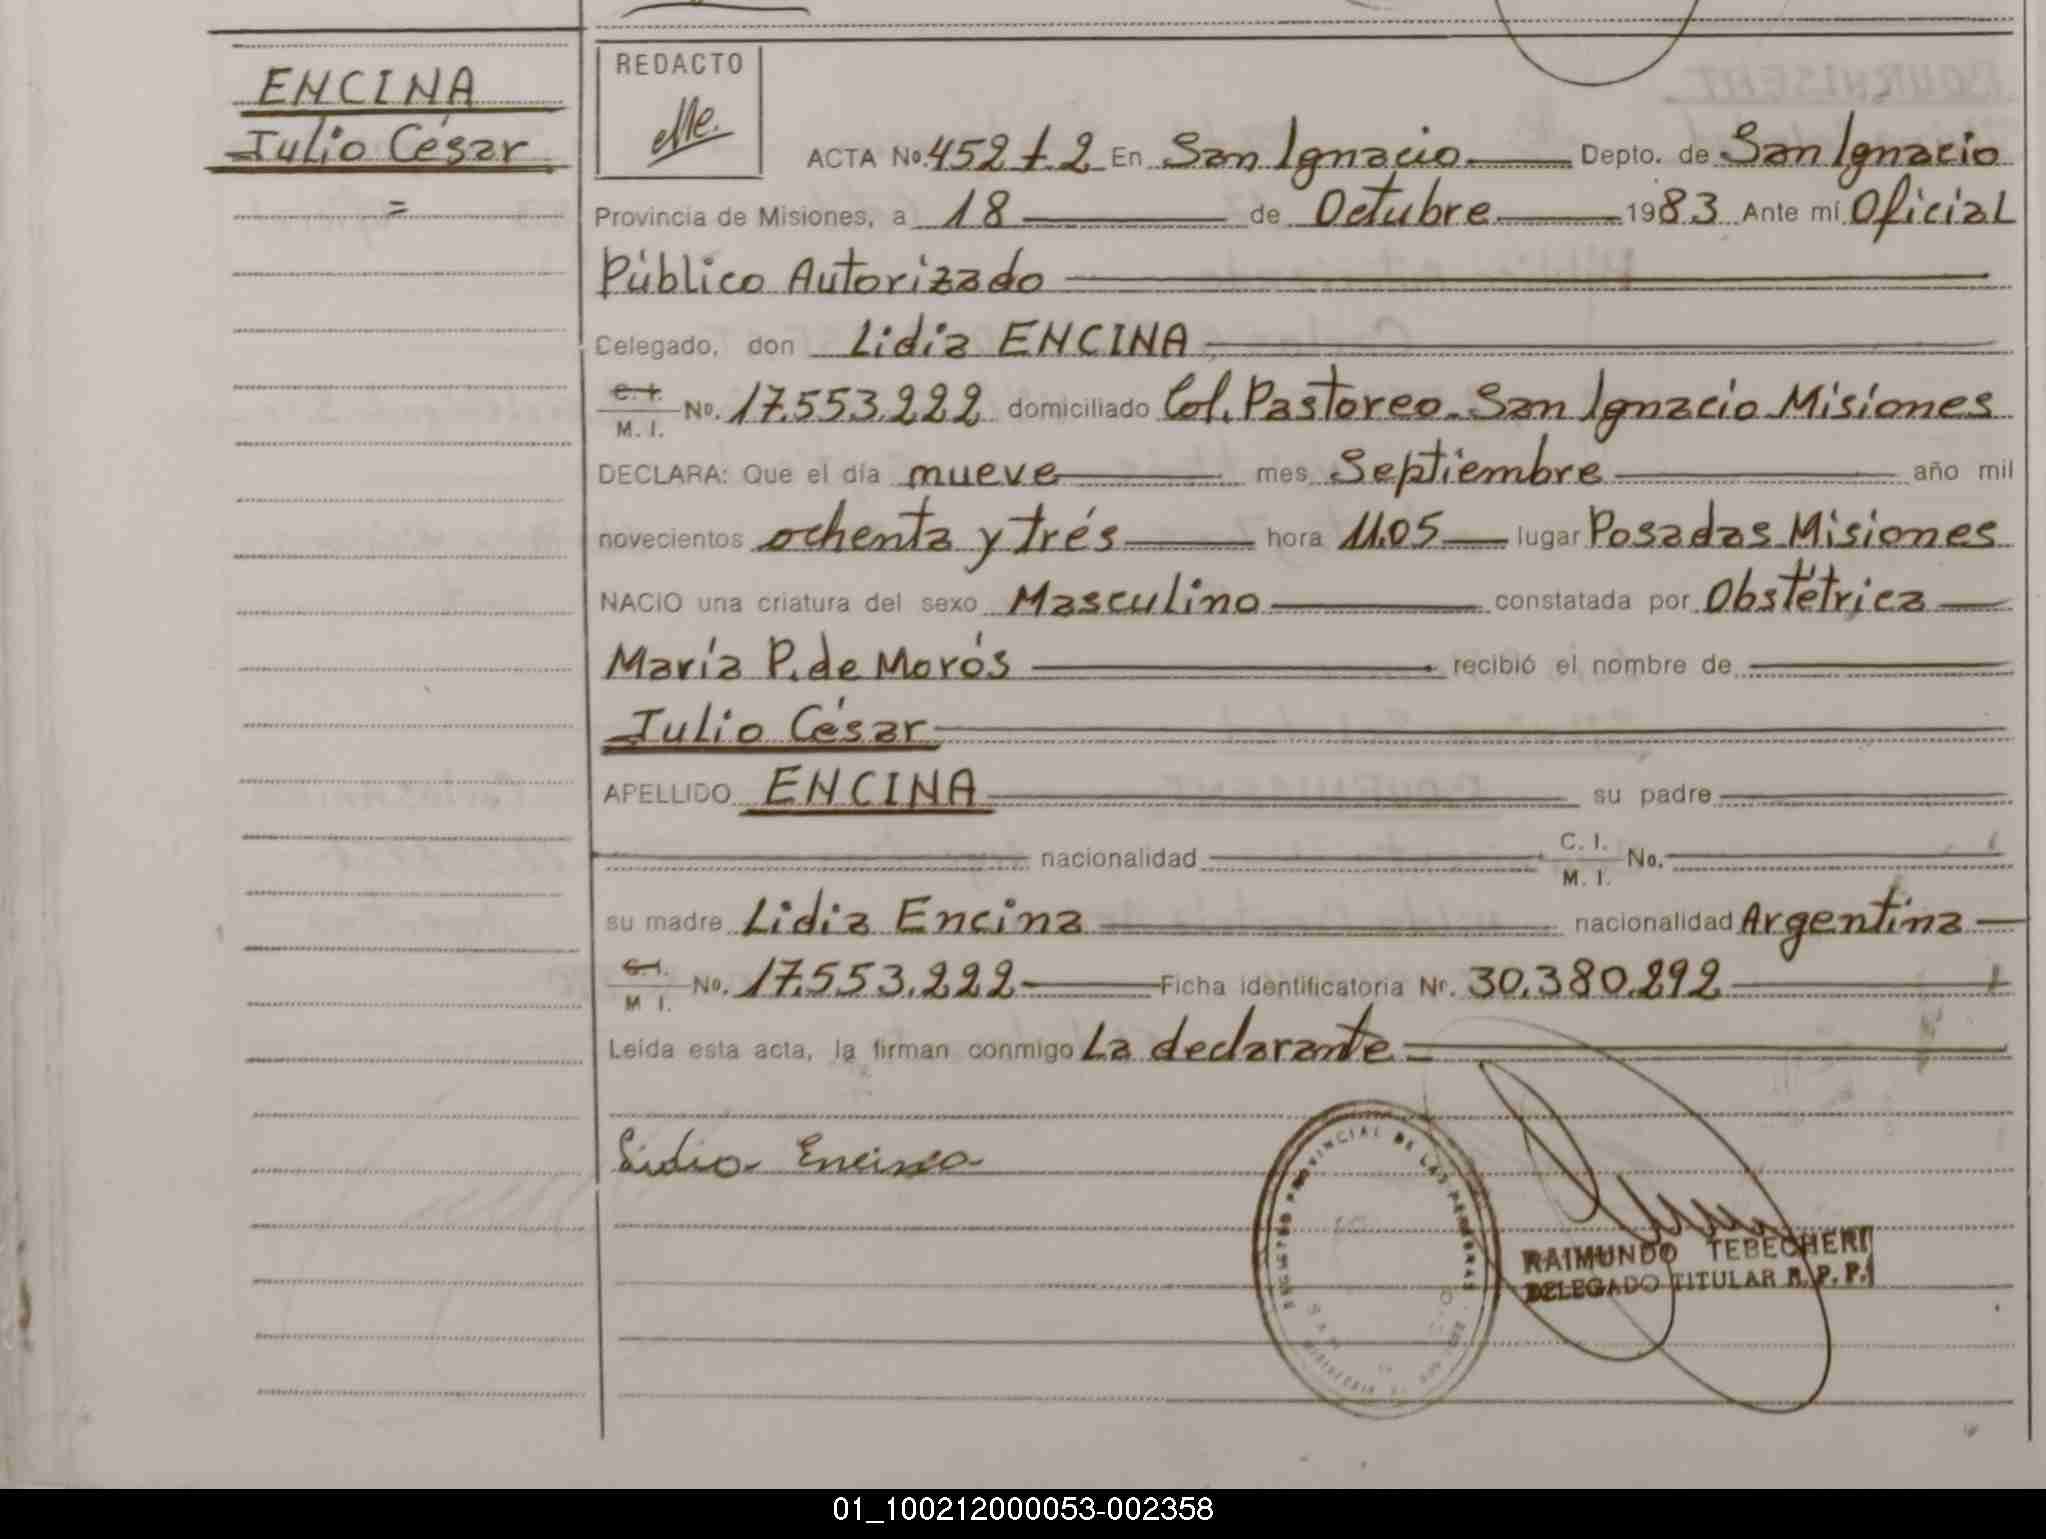 ENCINA
Julio César
=
REDACTO
ACTA No. 452 t. 2 En San Ignacio Depto. de San Ignacio
Provincia de Misiones, a 18 de Octubre 1983 Ante mí Oficial
Público Autorizado
Celegado, don Lidia ENCINA
C. I. M. I. No. 17.553.222 domiciliado Col. Pastoreo - San Ignacio Misiones
DECLARA: Que el día nueve mes Septiembre año mil
novecientos ochenta y trés hora 11.05 lugar Posadas Misiones
NACIO una criatura del sexo Masculino constatada por Obstétrica
María P. de Morós recibió el nombre de
Julio César
APELLIDO ENCINA su padre
nacionalidad C. I. M. I. No.
su madre Lidia Encina nacionalidad Argentina
C. I. M. I. No. 17.553.222 Ficha identificatoria Nr. 30.380.292
Leída esta acta, la firman conmigo La declarante
Lidia Encina
REGISTRO PROVINCIAL DE LAS PERSONAS
RAIMUNDO TEBECHERI
DELEGADO TITULAR R. P. P.
01_100212000053-002358